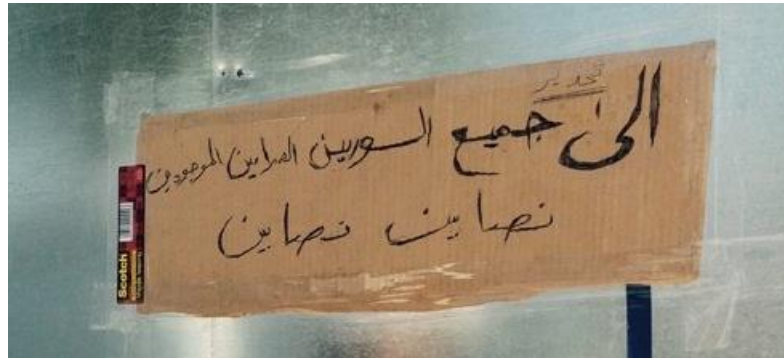 تحذير
الى جميع السوريين الموجودين
نصابين نصابين
Scotch